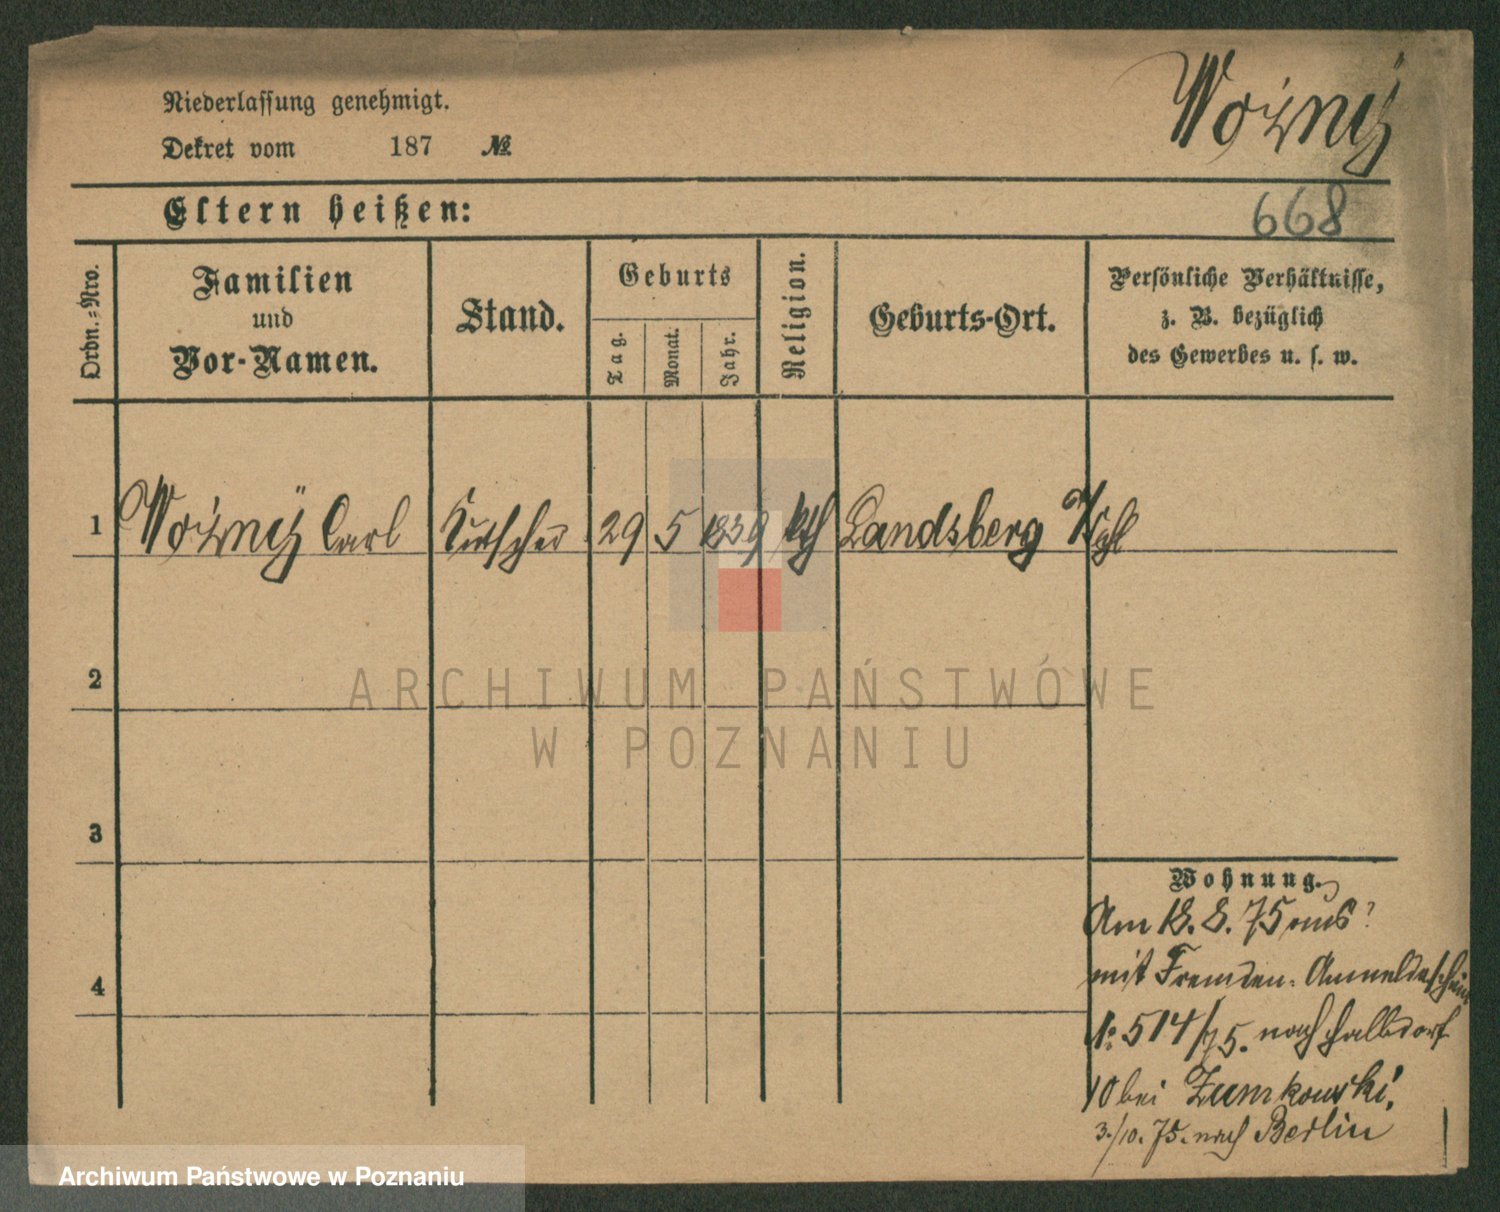 Niederlassung genehmigt.
Woźny
Dekret vom 187 №
Eltern heißen:
668
Ordn.-Nro.
Familien
und
Vor-Namen.
Stand.
Geburts
Tag.
Monat.
Jahr.
Religion.
Geburts-Ort.
Persönliche Verhältnisse,
z. B. bezüglich
des Gewerbes u. s. w.
1 Woźny Carl Kutscher 29 5 1839 kth Landsberg
2
3
4
Wohnung.
Am 18. 8. 75 aus ?
mit Fremden-Anmeldeschein
№ 514/75. nach Halbdorf
10 bei Zumkowski,
3./10. 75. nach Berlin
ARCHIWUM PAŃSTWOWE
W POZNANIU
Archiwum Państwowe w Poznaniu